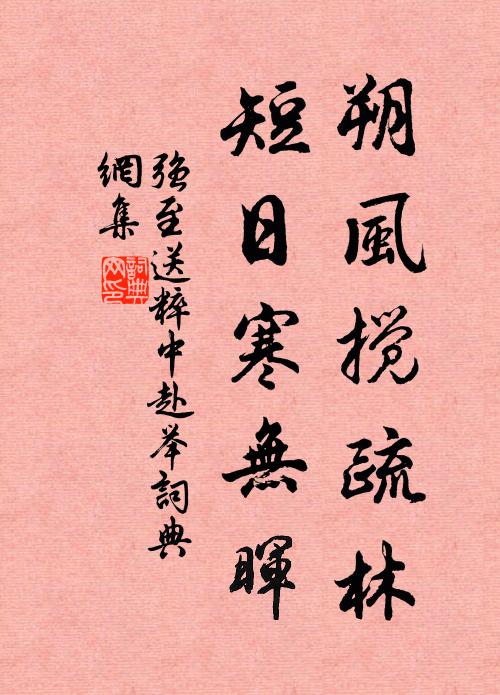 朔風攪疏林
短日寒無暉
強至送粹中赴举詞典
網集
詞典
網印